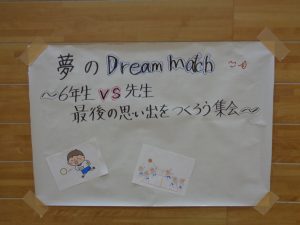 夢のDream match
～6年生 vs 先生
最後の思い出をつくろう集会～